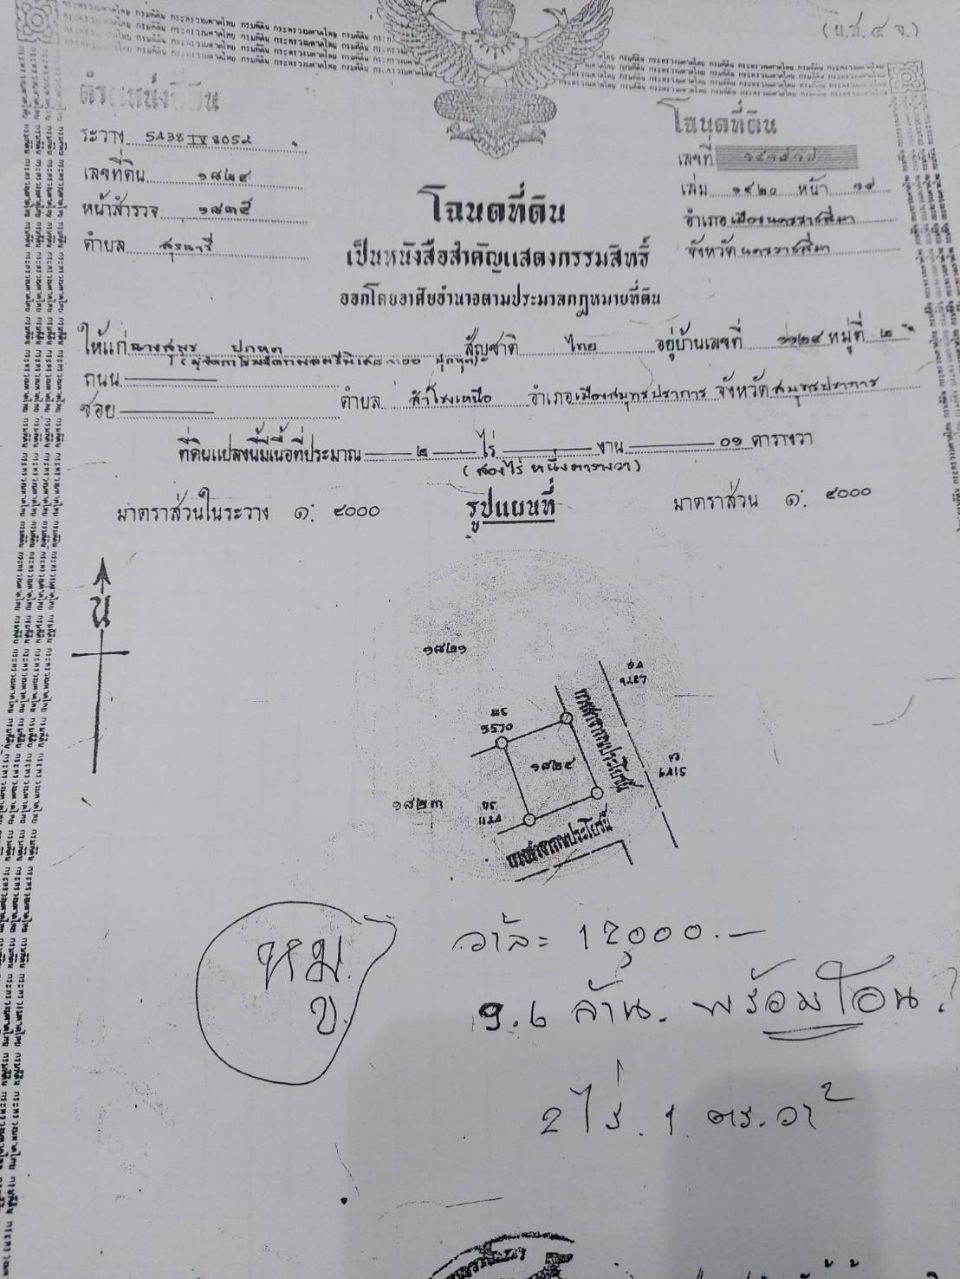 (น.ส. ๔ จ.)
ตำแหน่งที่ดิน
ระวาง 5438 IV 8054
เลขที่ดิน ๑๘๒๔
หน้าสำรวจ ๑๘๓๕
ตำบล สุรนารี
โฉนดที่ดิน
เลขที่
เล่ม ๑๔๒๐ หน้า ๑๙
อำเภอเมืองนครราชสีมา
จังหวัดนครราชสีมา
โฉนดที่ดิน
เป็นหนังสือสำคัญแสดงกรรมสิทธิ์
ออกโดยอาศัยอำนาจตามประมวลกฎหมายที่ดิน
ให้แก่ สัญชาติ ไทย อยู่บ้านเลขที่ หมู่ที่ ๒
ถนน ตำบล สำโรงเหนือ อำเภอเมืองสมุทรปราการ จังหวัดสมุทรปราการ
ซอย
ที่ดินแปลงนี้มีเนื้อที่ประมาณ ๒ ไร่ งาน ๐๑ ตารางวา
(สองไร่ หนึ่งตารางวา)
มาตราส่วนในระวาง ๑: ๔๐๐๐
รูปแผนที่
มาตราส่วน ๑: ๔๐๐๐
น
๑๘๒๑
๑๘๒๔
๑๘๒๓
ทางสาธารณประโยชน์
ทางสาธารณประโยชน์
หม.
ข.
วาละ 12,000.-
9.6 ล้าน. พร้อมโอน.
2 ไร่. 1 ตร.วา²